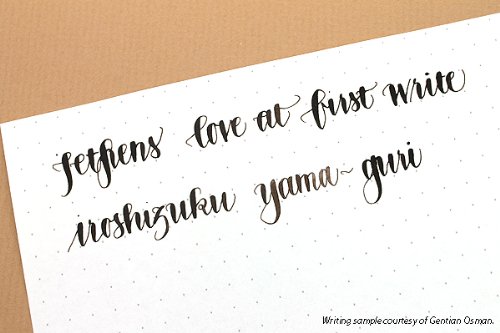 JetPens love at first write
iroshizuku yama-guri
Writing sample courtesy of Gentian Osman.